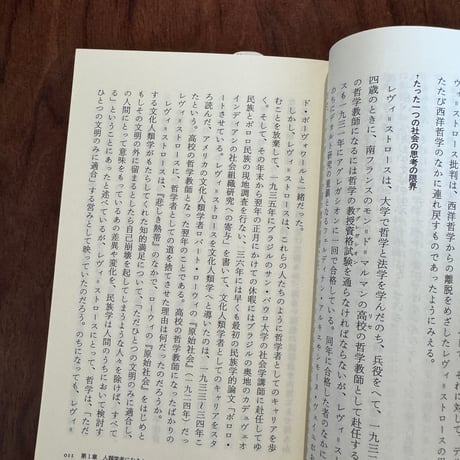 たたび西洋哲学のなかに連れ戻すものであったようにみえる。
たった一つの社会の思考の限界
レヴィ=ストロースは、大学で哲学と法学を学んだのち、兵役をへて、一九三
四歳のときに、南フランスのモン=ド=マルサンの高校の哲学教師として赴任する
の哲学教師になるには哲学の教授資格試験を通らなければならないが、レヴィ=スト
スも一九三一年にアグレガシオンに一回で合格している。同年に合格した者のなかに
ド・ボーヴォワールと一緒だった。
しかし、レヴィ=ストロースは、これらの人たちのように哲学者としてのキャリアを歩
むことを放棄して、一九三五年にブラジルのサン・パウロ大学の社会学講師に赴任してゆ
く。そして、その年末から翌年の正月にかけての休暇にはブラジルの奥地のカデュヴェオ
民族とボロロ民族の現地調査を行ない、三六年には早くも最初の民族学的論文「ボロロ・
インディアンの社会組織研究への寄与」を書いて、文化人類学者としてのキャリアをスタ
ートさせている。レヴィ=ストロースを文化人類学へと導いたのは、一九三三〜三四年ころ
ろ読んだ、アメリカの文化人類学者ロバート・ローウィの『原始社会』(一九二四年)だっ
たという。高校の哲学教師となった翌年のことである。高校の哲学教師になったばかりの
レヴィ=ストロースに、哲学者としての道を捨てさせた理由は何だったのだろうか。
レヴィ=ストロースは、『悲しき熱帯』のなかで、ローウィの『原始社会』をはじめと
する文化人類学がもたらしてくれた知的満足について、「ただひとつの文明のみに適合し、
もしその文明の外に留まるとしたら自己崩壊を起してしまうような人々を除けば、すべて
の人間にとって意味をもっているあの差異や変化を、民族学は人間のうちにおいて検討す
る」ということにあったと述べているが、レヴィ=ストロースにとって、哲学は、「ただ
ひとつの文明のみに適合」する営みとして映っていたのだろう。のちになっても、レヴィ=
011 第1章